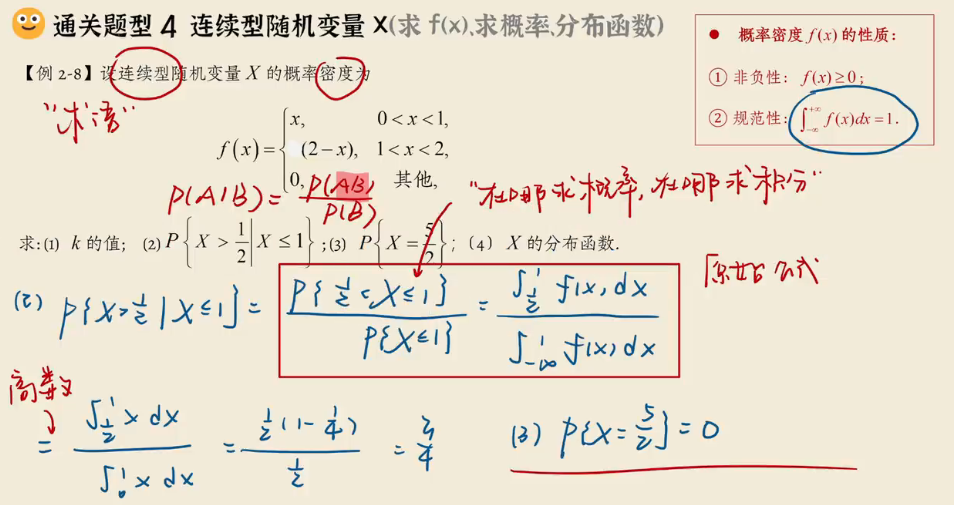 通关题型 4 连续型随机变量 X(求 f(x),求概率,分布函数)
● 概率密度 f(x) 的性质:
① 非负性: f(x)≥0;
② 规范性: ∫_{-∞}^{+∞} f(x)dx=1.
【例 2-8】设连续型随机变量 X 的概率密度为
“求谁”
f(x)={ x, 0<x<1,
(2−x), 1<x<2,
0, 其他,
P(A|B)=P(AB)/P(B)
“在哪求概率,在哪求积分”
求:(1) k 的值; (2) P{X>1/2|X≤1};(3) P{X=5/2}; (4) X 的分布函数.
原始公式
(2) P{X>1/2|X≤1}= P{1/2<X≤1}/P{X≤1} = ∫_{1/2}^{1} f(x)dx/∫_{-∞}^{1} f(x)dx
高数
= ∫_{1/2}^{1} x dx/∫_{0}^{1} x dx = 1/2(1-1/4)/(1/2) = 3/4
(3) P{X=5/2}=0